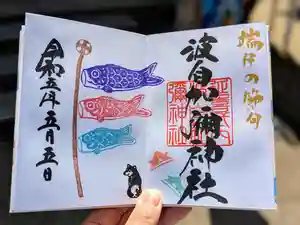 端午の節句
波自加彌神社
令和五年五月五日